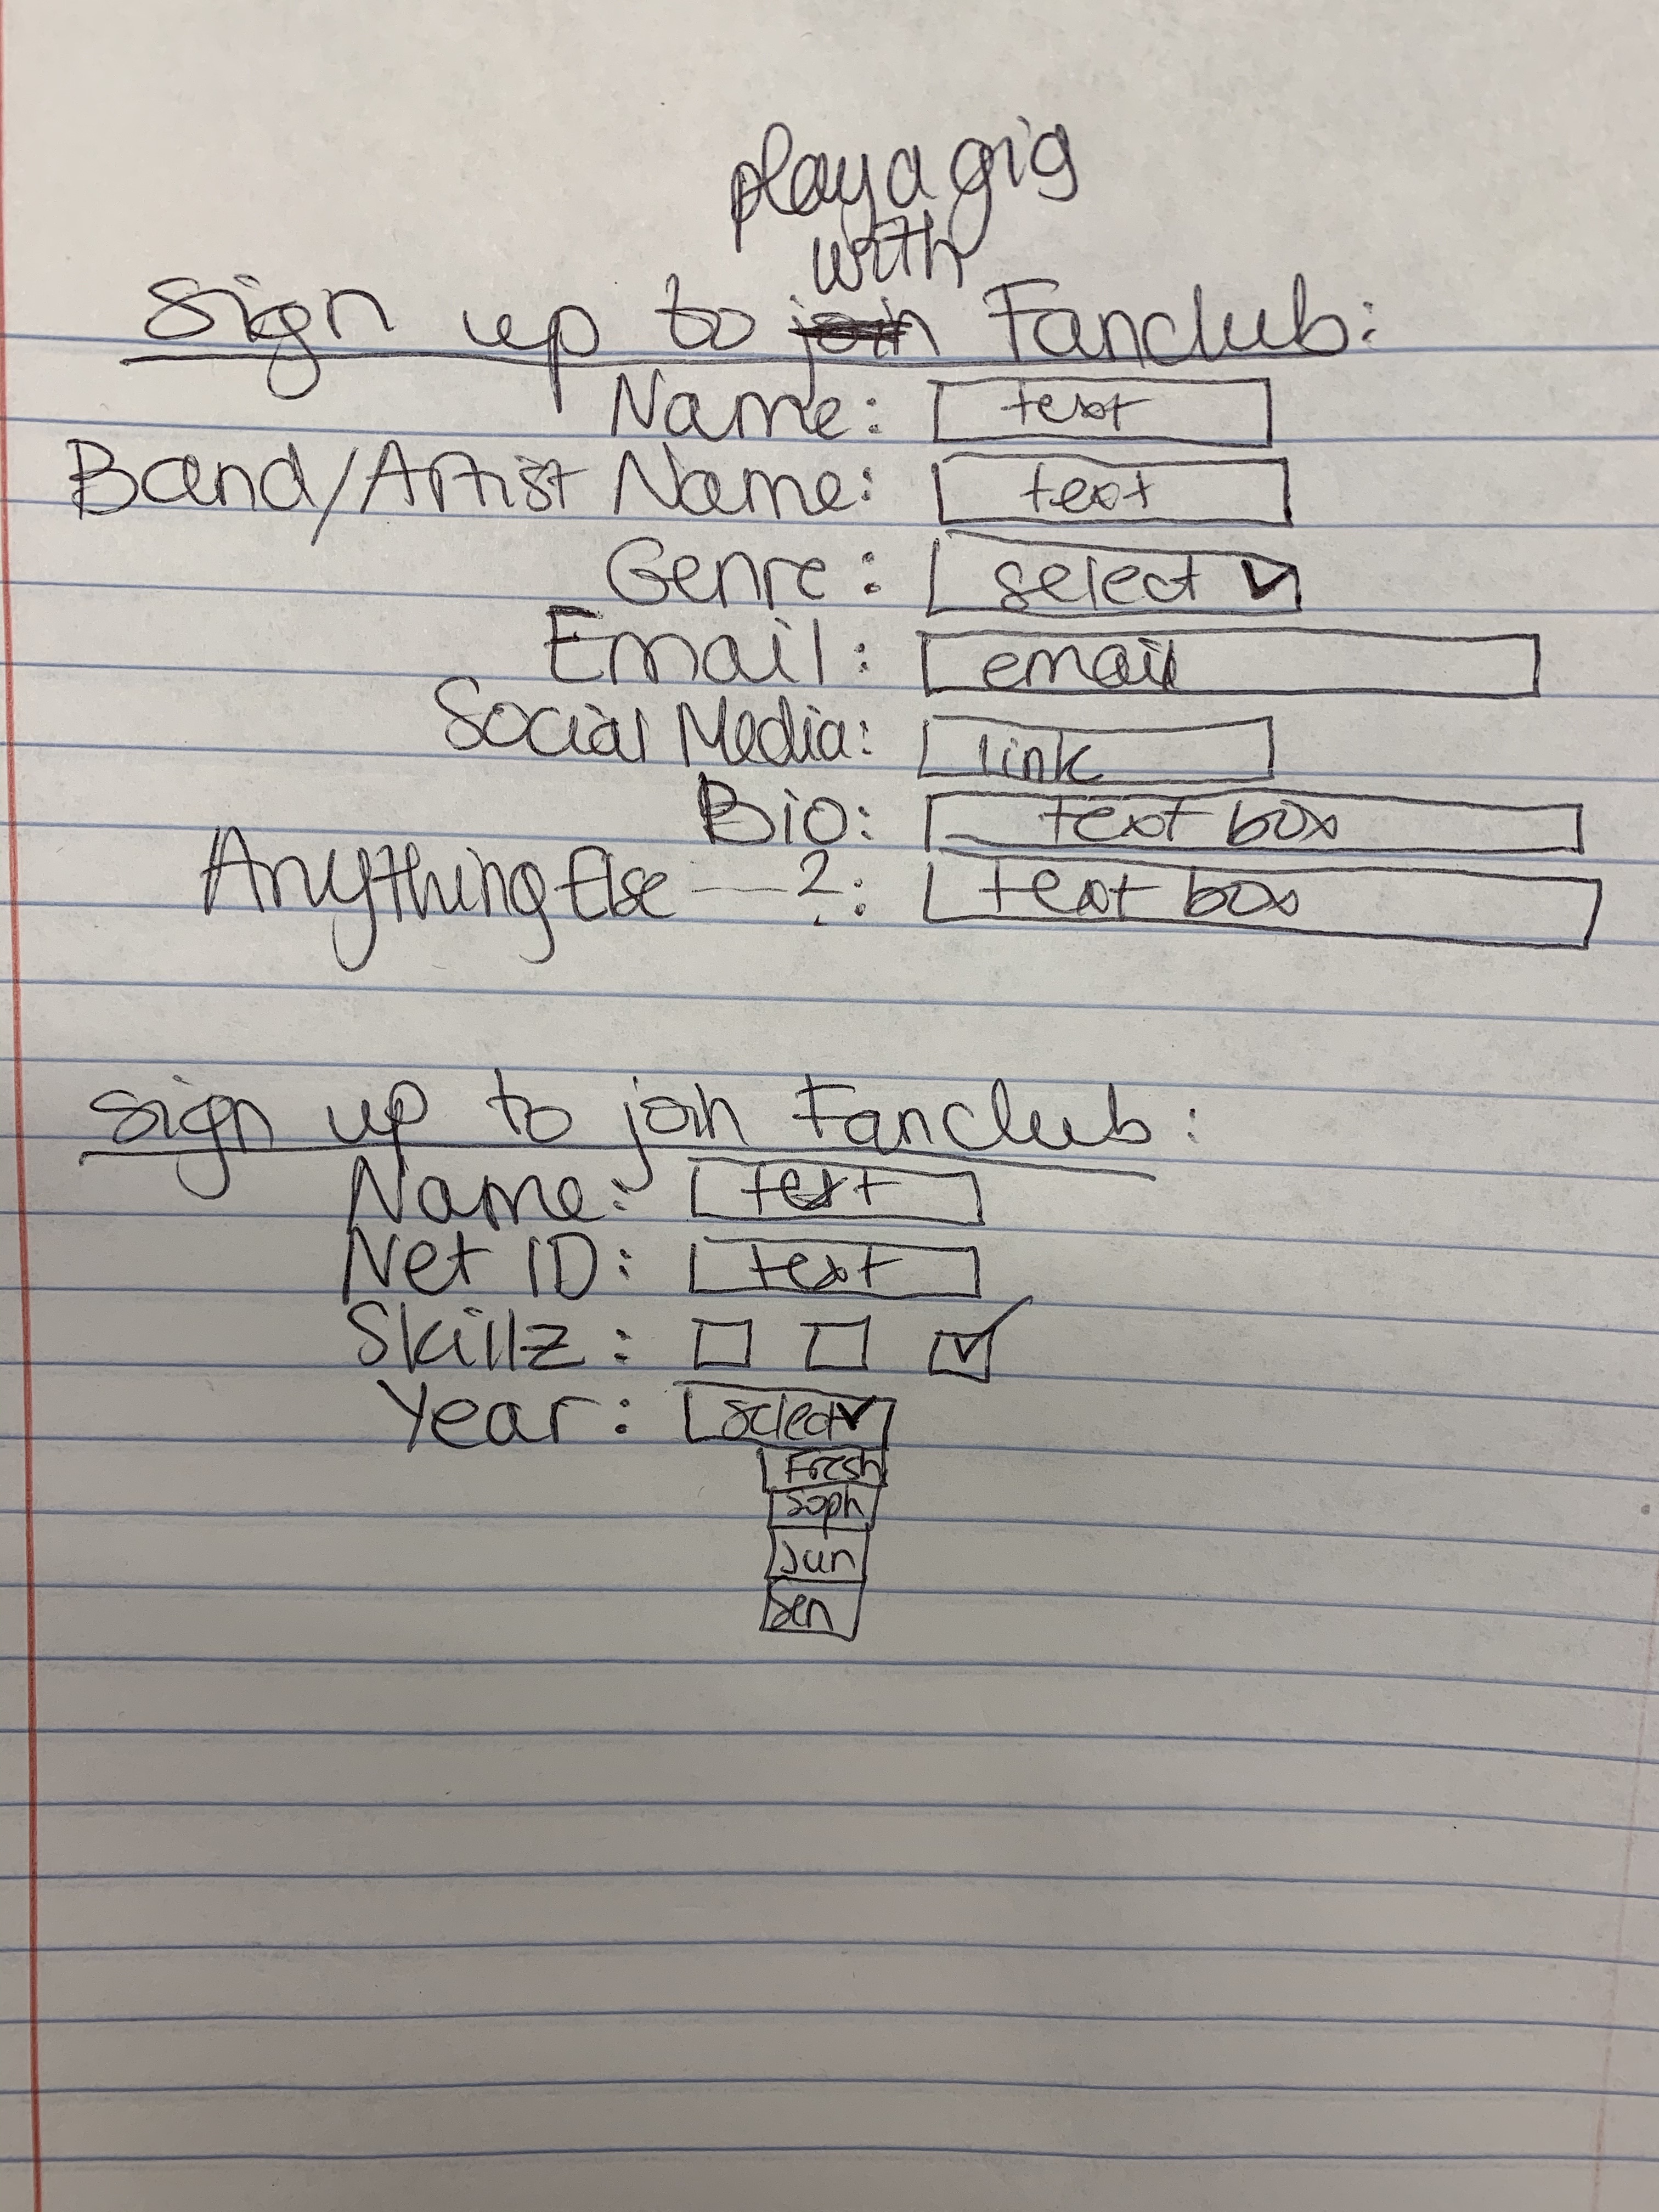 play a gig
with
Sign up to join Fanclub:
Name: text
Band/Artist Name: text
Genre: select
Email: email
Social Media: link
Bio: text box
Anything Else —— ?: text box
Sign up to join Fanclub:
Name: text
Net ID: text
Skillz:
Year: select
Fresh
Soph
Jun
Sen